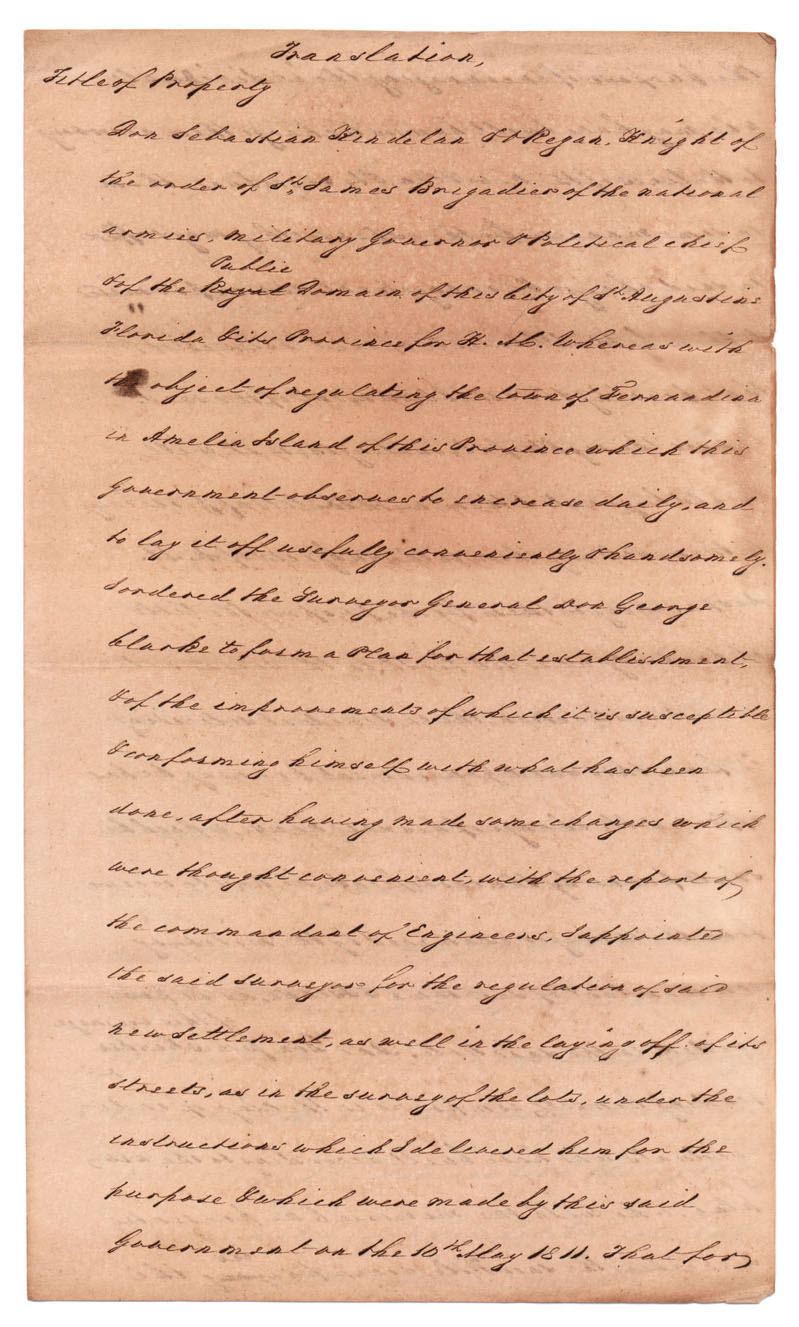 Translation,
Title of Property
Don Sebastian Kindelan & O Regan, Knight of
the order of St. James Brigadier of the national
armies, military Governor & Political chief
Public
& of the Royal Domain of this City of St Augustine
Florida & its Province for H. M. Whereas with
the object of regulating the town of Fernandina
in Amelia Island of this Province which this
Government observes to increase daily, and
to lay it off usefully conveniently & handsomely.
I ordered the Surveyor General Don George
Clarke to form a Plan for that establishment,
& of the improvements of which it is susceptible
& conforming himself with what has been
done, after having made some changes which
were thought convenient, with the report of
the commandant of Engineers, I appointed
the said surveyor for the regulation of said
new settlement, as well in the laying off of its
streets, as in the survey of the lots, under the
instructions which I delivered him for the
purpose & which were made by this said
Government on the 10th May 1811. That for